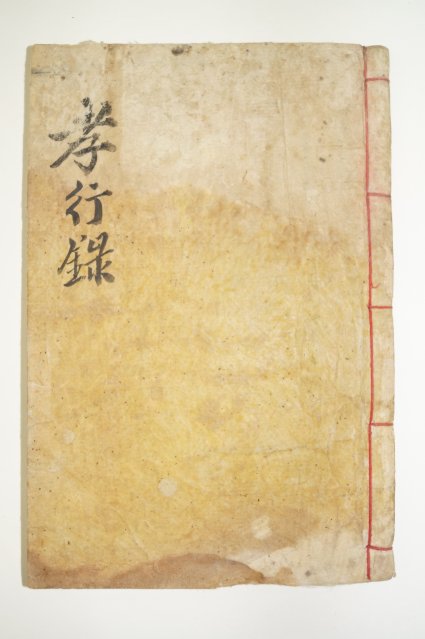 孝行錄